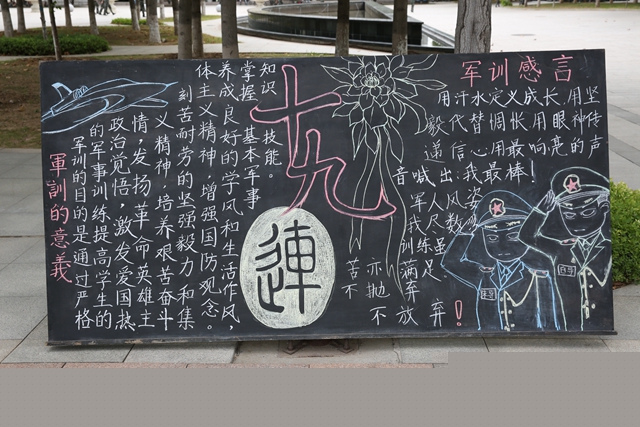 軍訓的意義
军训的目的是通过严格
的军事训练提高学生的
政治觉悟，激发爱国热
情，发扬革命英雄主
义精神，培养艰苦奋斗
刻苦耐劳的坚强毅力和集
体主义精神，增强国防观念。
养成良好的学风和生活作风，
掌握 基本军事
知识 技能。
十九
連
军训感言
用汗水定义成长，用坚
毅代替调怅，用眼神传
递信心用最响亮的声
音喊出：我最棒！
军人风姿我尽数
训练虽苦亦满足
不抛弃
不放弃！